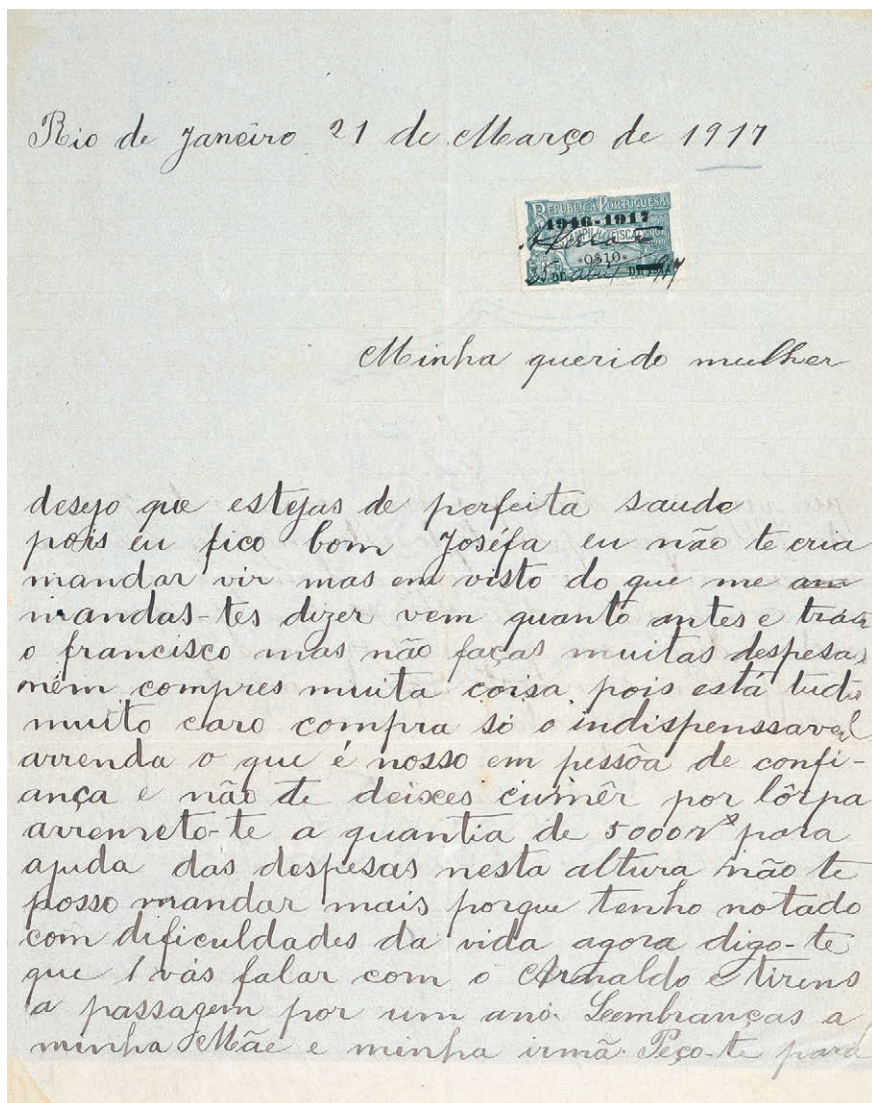 Rio de Janeiro 21 de Março de 1917
REPUBLICA PORTUGUESA
1916-1917
0$10
25 DE Abril DE 1917
Minha querido mulher
desejo que estejas de perfeita saude
pois eu fico bom Joséfa eu não te cria
mandar vir mas em visto do que me
mandas-tes dizer vem quanto antes e trás
o francisco mas não faças muitas despesas
nem compres muita coisa pois está tudo
muito caro compra só o indispenssavel
arrenda o que é nosso em pessôa de confi-
ança e não te deixes cumêr por lôrpa
arremeto-te a quantia de 5000 para
ajuda das despesas nesta altura não te
posso mandar mais porque tenho notado
com dificuldades da vida agora digo-te
que vás falar com o Arnaldo e tirens
a passagem por um ano. Lembranças a
minha Mãe e minha irmã. Peço-te para